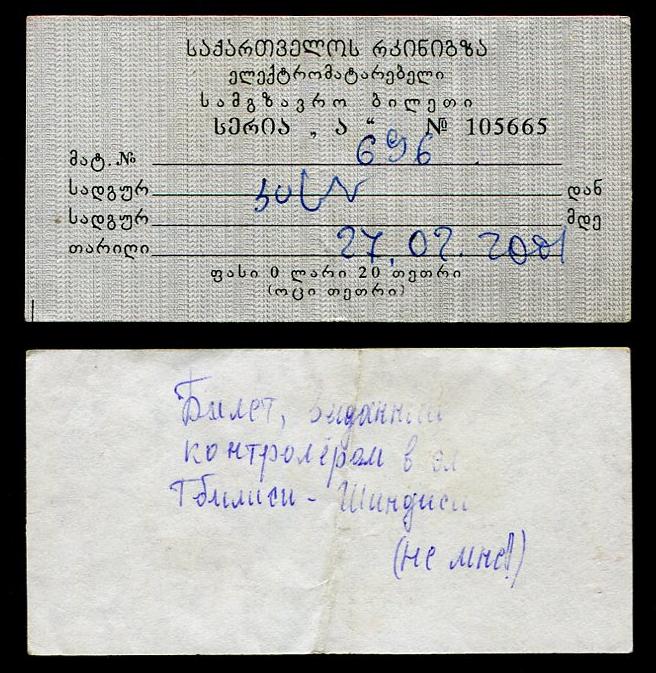 საქართველოს რკინიგზა
ელექტრომატარებელი
სამგზავრო ბილეთი
სერია „ ა “ № 105665
მატ. № 696
სადგურ დან
სადგურ მდე
თარიღი 27.02.2001
ფასი 0 ლარი 20 თეთრი
(ოცი თეთრი)
Билет, выданный
контролёром в эл
Тбилиси - Шиндиси
(не мне!)